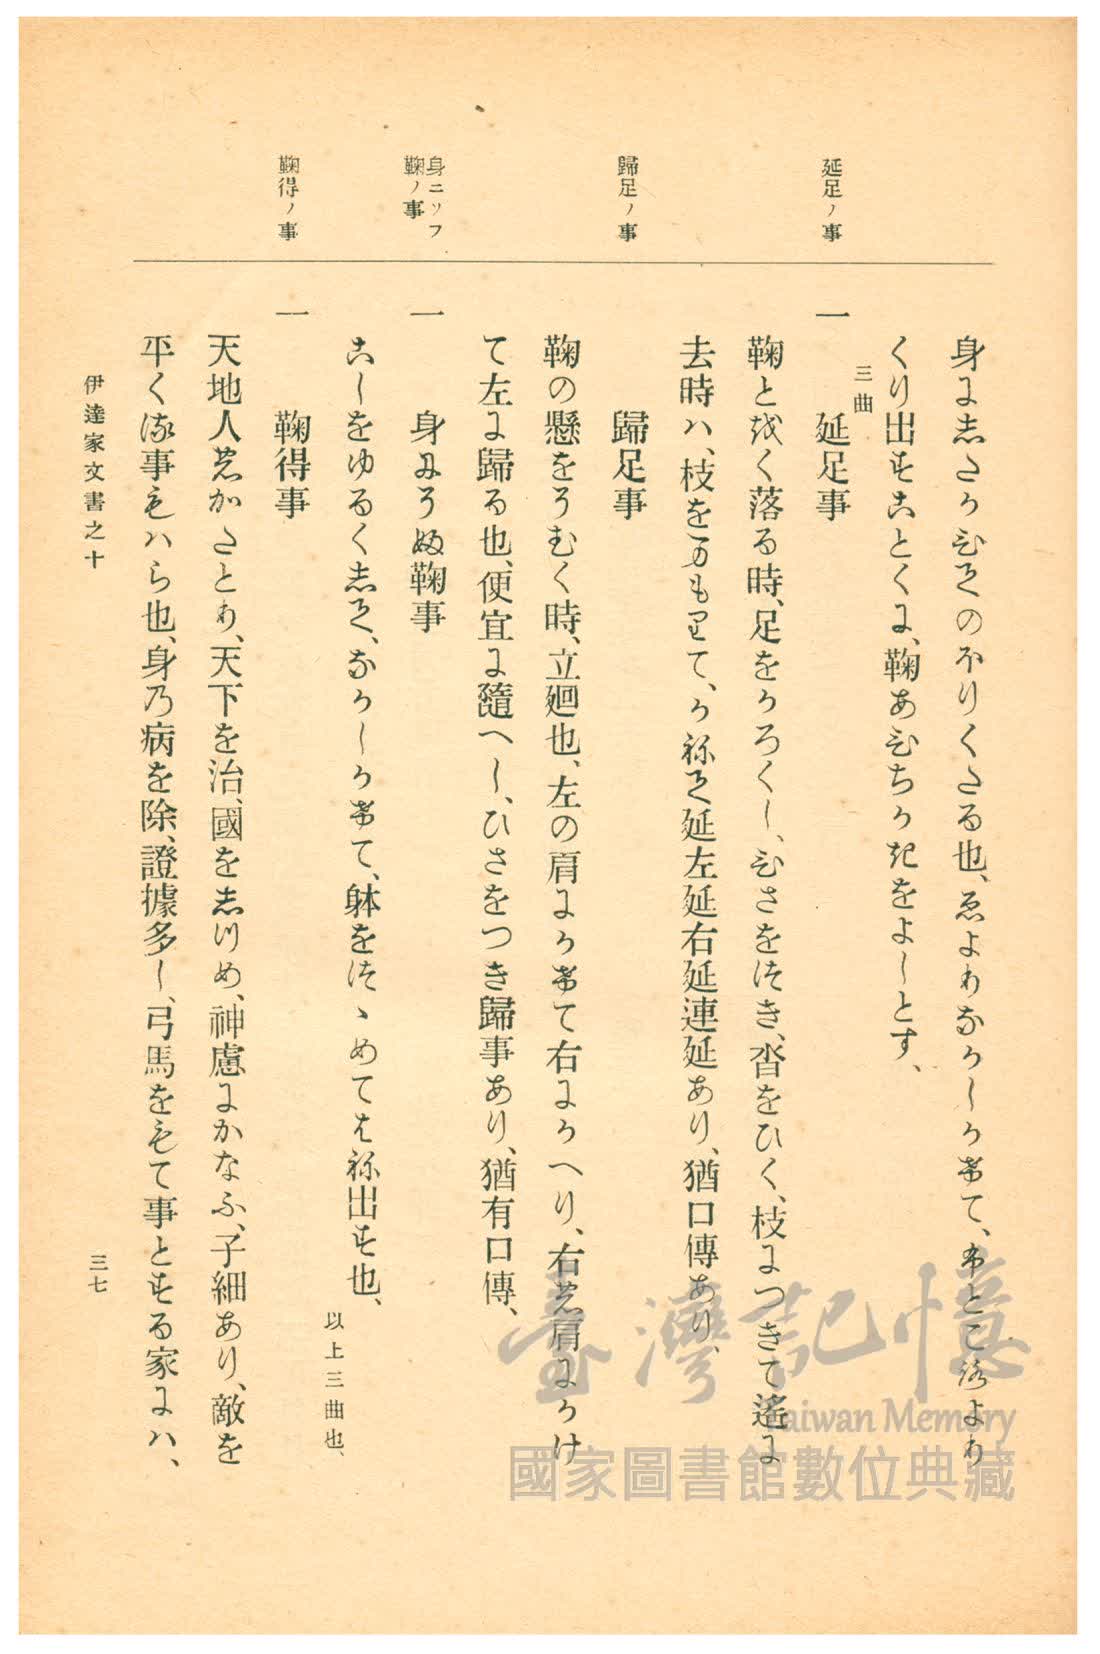 延足ノ事
歸足ノ事
身ニソフ
鞠ノ事
鞠得ノ事
身に志たかひてのほりくたる也、ゑよりなかしかけて、ふところより
くり出すことくに、鞠あひちかきをよしとす、
三曲
一 延足事
鞠とをく落る時、足をかろくし、ひさをつき、沓をひく、枝につきて遙に
去時ハ、枝をまもりて、かねて延左延右延連延あり、猶口傳あり、
歸足事
鞠の懸をそむく時、立廻也、左の肩にかけて右にかへり、右の肩にかけ
て左に歸る也、便宜に隨へし、ひさをつき歸事あり、猶有口傳、
一 身にそふ鞠事
こしをゆるく志て、なかしかけて、躰をつゝめてはね出す也、以上三曲也、
一 鞠得事
天地人のかたとり、天下を治、國を志つめ、神慮にかなふ、子細あり、敵を
平くる事もハら也、身乃病を除、證據多し、弓馬をもて事とする家にハ、
伊達家文書之十
三七
臺灣記憶
Taiwan Memory
國家圖書館數位典藏